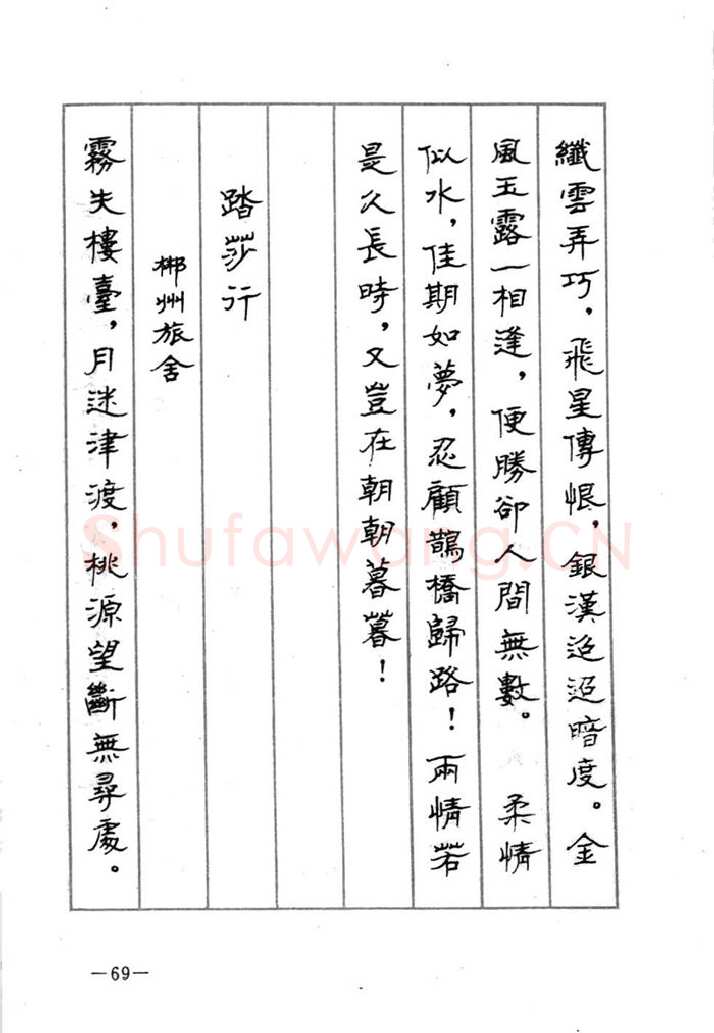 纖雲弄巧，飛星傳恨，銀漢迢迢暗度。金
風玉露一相逢，便勝卻人間無數。 柔情
似水，佳期如夢，忍顧鵲橋歸路！兩情若
是久長時，又豈在朝朝暮暮！
踏莎行
郴州旅舍
霧失樓臺，月迷津渡，桃源望斷無尋處。
—69—
Shufawang.CN